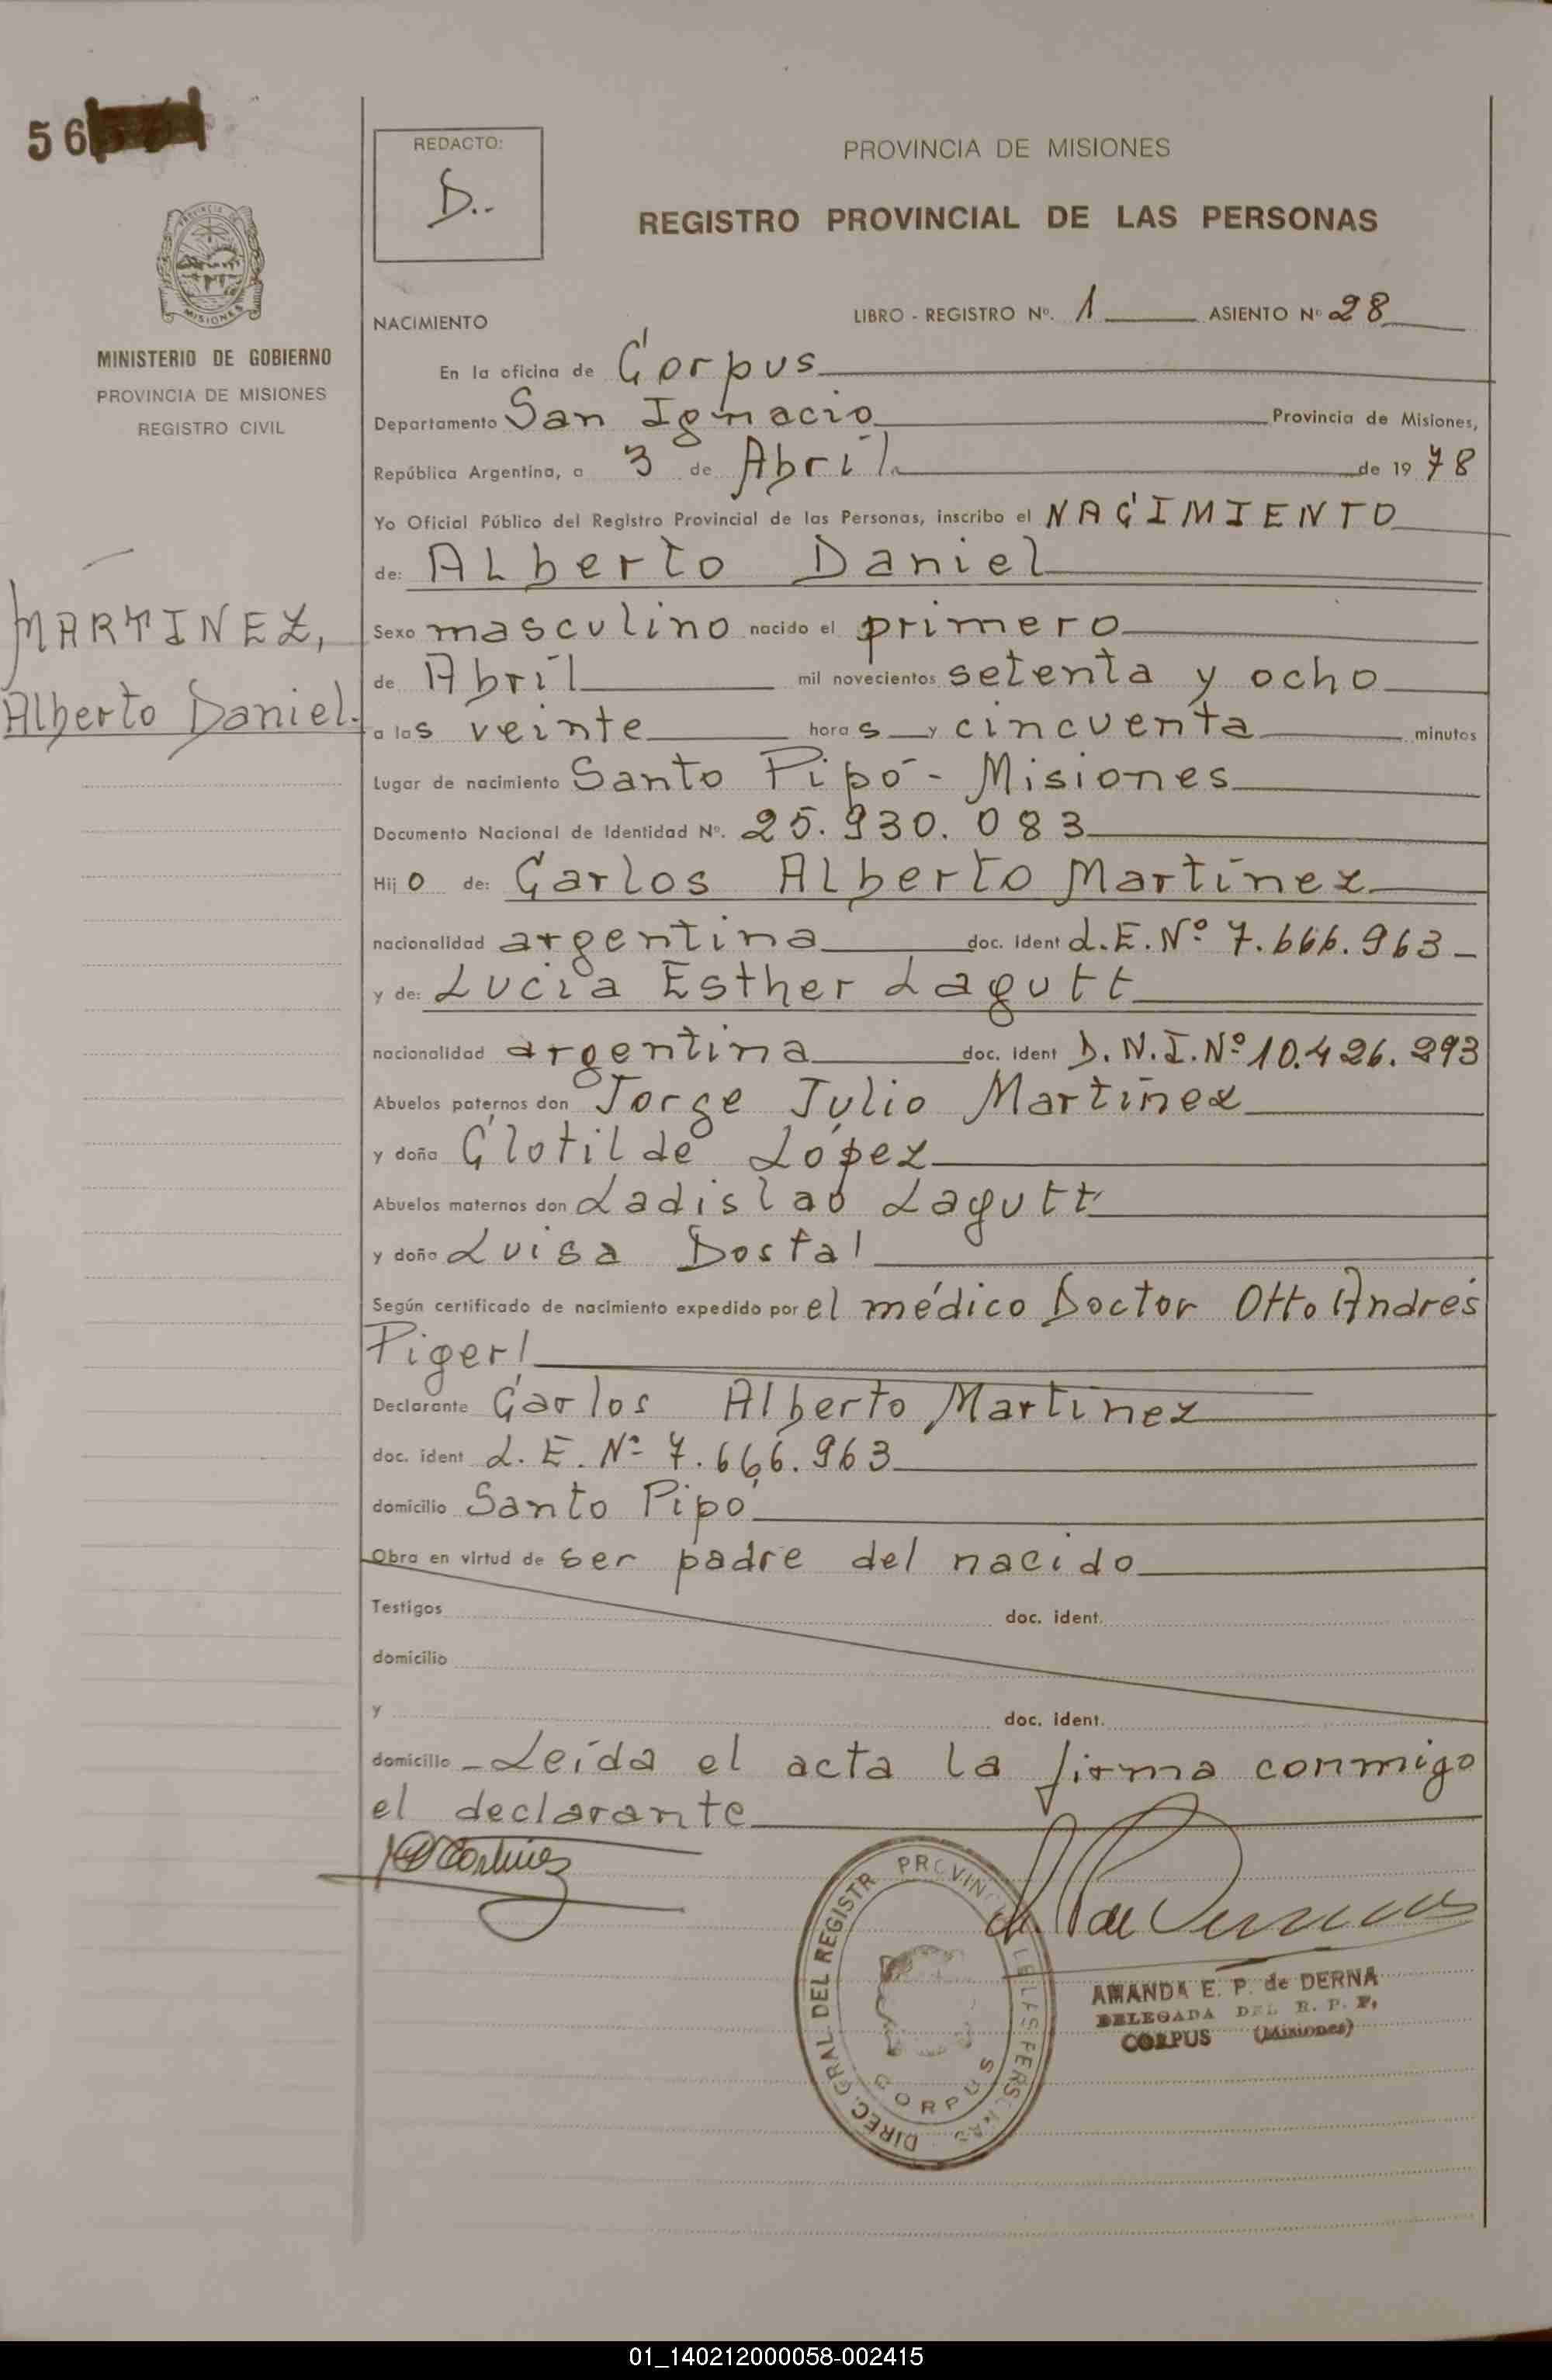 56
REDACTO:
D..
PROVINCIA DE MISIONES
REGISTRO PROVINCIAL DE LAS PERSONAS
MISIONES
MINISTERIO DE GOBIERNO
PROVINCIA DE MISIONES
REGISTRO CIVIL
MARTINEZ,
Alberto Daniel.
NACIMIENTO LIBRO - REGISTRO Nº. 1 ASIENTO Nº 28
En la oficina de Corpus
Departamento San Ignacio Provincia de Misiones,
República Argentina, a 3 de Abril de 1978
Yo Oficial Público del Registro Provincial de las Personas, inscribo el NACIMIENTO
de: Alberto Daniel
Sexo masculino nacido el primero
de Abril mil novecientos setenta y ocho
a las veinte horas y cincuenta minutos
Lugar de nacimiento Santo Pipó - Misiones
Documento Nacional de Identidad Nº. 25.930.083
Hijo de: Carlos Alberto Martínez
nacionalidad argentina doc. ident L.E.Nº 7.666.963-
y de: Lucía Esther Lagutt
nacionalidad argentina doc. ident D.N.I.Nº 10.426.293
Abuelos paternos don Jorge Julio Martínez
y doña Clotilde López
Abuelos maternos don Ladislao Lagutt
y doña Luisa Dostal
Según certificado de nacimiento expedido por el médico Doctor Otto Andrés
Pigerl
Declarante Carlos Alberto Martínez
doc. ident L. E. Nº 7.666.963
domicilio Santo Pipó
Obra en virtud de ser padre del nacido
Testigos doc. ident.
domicilio
y doc. ident.
domicilio - Leída el acta la firma conmigo
el declarante
DIREC. GRAL. DEL REGISTR PROVINC DE LAS PERSONAS
CORPUS
AMANDA E. P. de DERNA
DELEGADA DEL R. P. P.
CORPUS (Misiones)
01_140212000058-002415